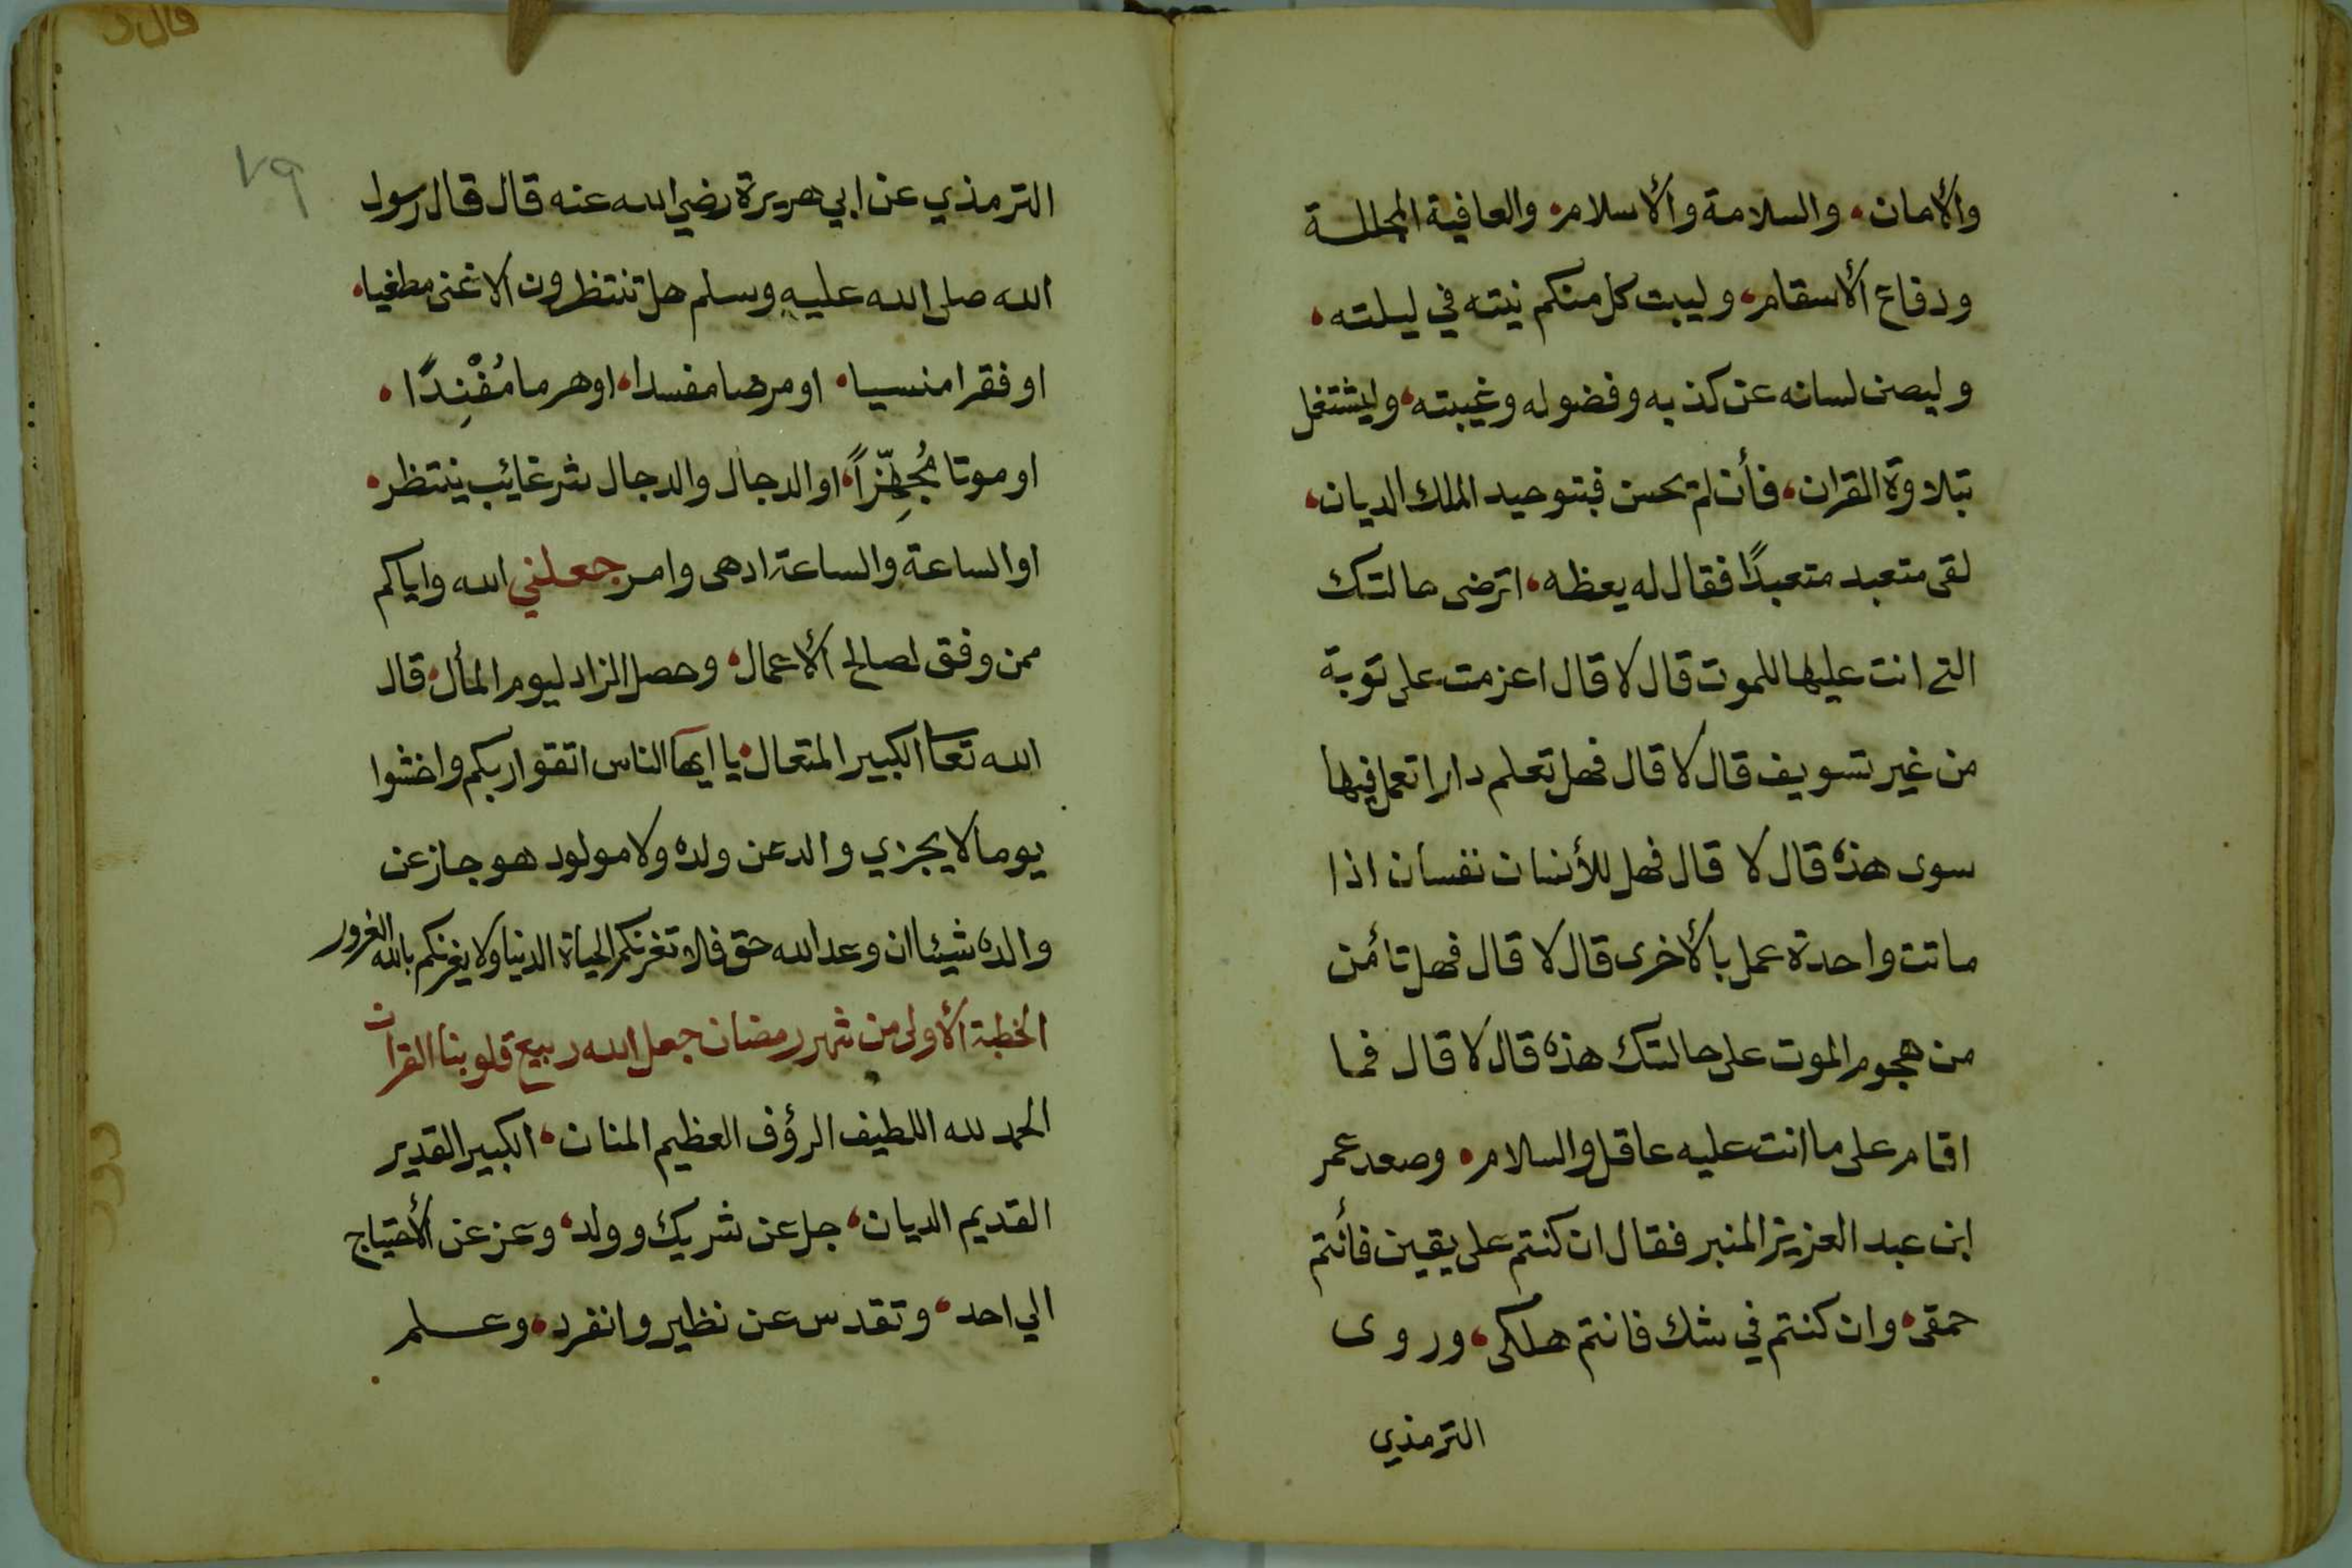 والأمان، والسلامة والأسلام، والعافية المجللة
ودفاع الأسقام، وليبت كل منكم نيته في ليلته،
وليصن لسانه عن كذبه وفضوله وغيبته، وليشتغل
بتلاوة القران، فأن لم يحسن فبتوحيد الملك الديان،
لقى متعبد متعبدًا فقال له يعظه، اترضى حالتك
التي انت عليها للموت قال لا قال اعزمت على توبة
من غير تسويف قال لا قال فهل تعلم دارا تعمل فيها
سوى هذه قال لا قال فهل للأنسان نفسان اذا
ماتت واحدة عمل بالأخرى قال لا قال فهل تأمن
من هجوم الموت على حالتك هذه قال لا قال فما
اقام على ما انت عليه عاقل والسلام، وصعد عمر
ابن عبد العزيز المنبر فقال ان كنتم على يقين فأنتم
حمقى، وان كنتم في شك فانتم هلكى، وروى
الترمذي
٧٩
الترمذي عن ابي هريرة رضي الله عنه قال قال رسول
الله صلى الله عليه وسلم هل تنتظرون الا غنى مطغيا،
او فقرا منسيا، او مرضا مفسدا، او هرما مُفْنِدًا،
او موتا مُجهِّزاً، او الدجال والدجال شر غايب ينتظر،
او الساعة والساعة ادهى وامر جعلني الله واياكم
ممن وفق لصالح الأعمال، وحصل الزاد ليوم المأل، قال
الله تعا الكبير المتعال، يا ايها الناس اتقوا ربكم واخشوا
يوما لا يجزي والد عن ولده ولا مولود هو جاز عن
والده شيئا ان وعد الله حق فلا تغرنكم الحياة الدنيا ولا يغرنكم بالله الغرور
الخطبة الأولى من شهر رمضان جعل الله ربيع قلوبنا القران
الحمد لله اللطيف الرؤف العظيم المنان، الكبير القدير
القديم الديان، جل عن شريك وولد، وعز عن الأحتياج
الي احد، وتقدس عن نظير وانفرد، وعلم